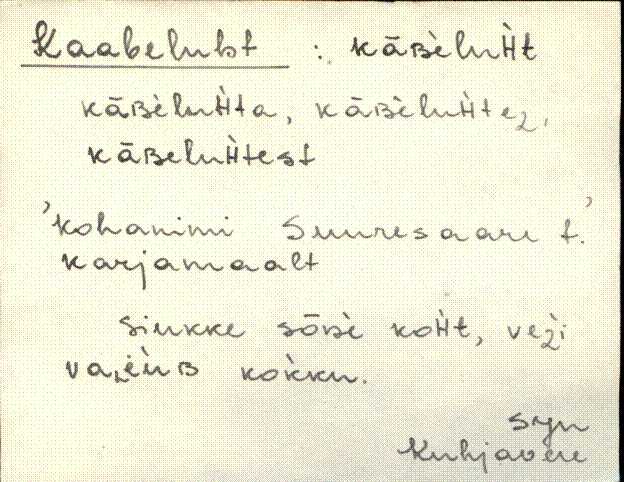 Kaabeluht : kāʙeluH̀t
kāʙeluH̀ta, kāʙeluH̀tez,
kāʙeluH̀test
'kohanimi Suuresaare t.'
karjamaalt
siukke sōʙè koH̀t, vezi
vaɪ̯èùʙ kok̀ku.
SJn
Kuhjavere